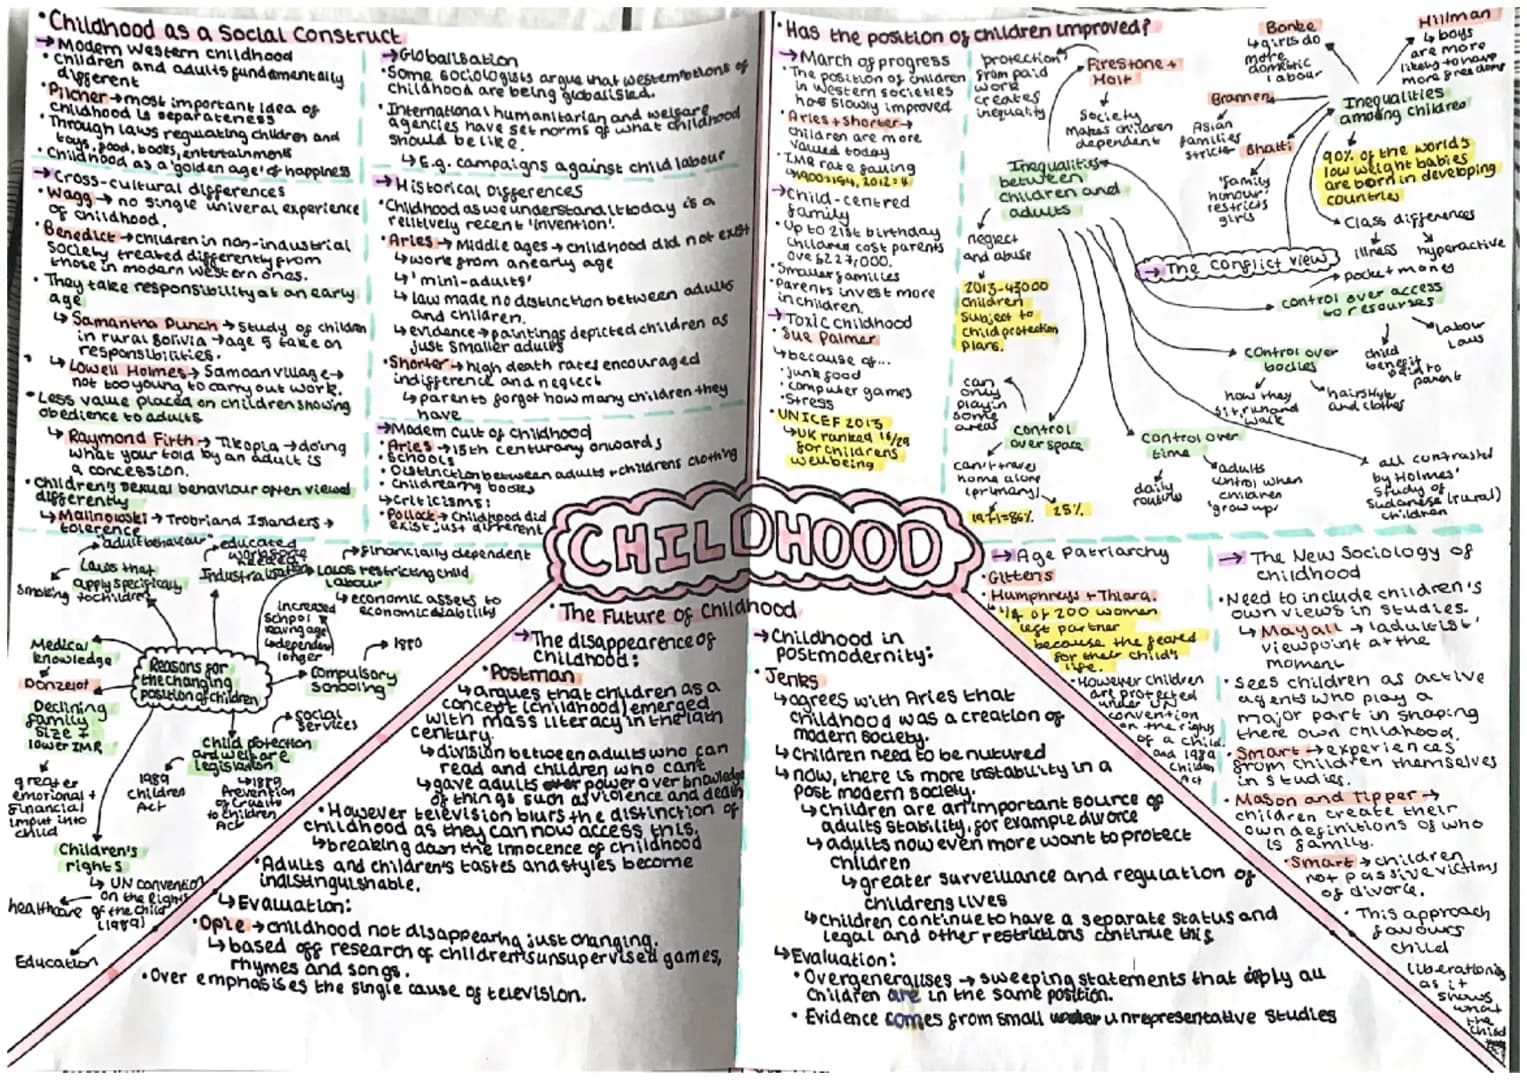 • Childhood as a Social Construct
→ Modern Western childhood
• Children and adults fundamentally
different
• Pilcher → most important idea of
childhood is separateness
• Through laws regulating children and
toys, food, books, entertainments
• Childhood as a 'golden age' of happiness
→ Cross-cultural differences
• Wagg → no single univeral experience
of childhood.
• Benedict → children in non-industrial
society treated differently from
those in modern western ones.
• They take responsibility at an early
age
↳ Samantha Punch → Study of children
in rural Bolivia → age 5 take on
responsibilities.
↳ Lowell Holmes → Samoan village →
not too young to carry out work.
• Less value placed on children showing
obedience to adults
↳ Raymond Firth → Tikopia → doing
what your told by an adult is
a concession.
• Children's sexual behaviour often viewed
differently
↳ Malinowski → Trobriand Islanders →
tolerence
→ Globalisation
• Some sociologists argue that western notions of
childhood are being globalised.
• International humanitarian and welfare
agencies have set norms of what childhood
should be like.
↳ E.g. campaigns against child labour
→ Historical Differences
• Childhood as we understand it today is a
relitively recent 'invention'.
• Aries → Middle ages → childhood did not exist
↳ work from an early age
↳ 'mini-adults'
↳ law made no distinction between adults
and children.
↳ evidence → paintings depicted children as
just smaller adults
• Shorter → high death rates encouraged
indifference and neglect
↳ parents forgot how many children they
have
→ Modern cult of childhood
• Aries → 15th centurany onwards
• Schools
• Distinction between adults + childrens clothing
• Childrearing books
↳ criticisms:
• Pollack → Childhood did
exist just different
• Has the position of children improved?
→ March of progress
• The position of children
in western societies
has slowly improved
• Aries + Shorter →
children are more
valued today
• IMR rate falling
↳ 1900=154, 2012=4
→ Child-centred
family
• Up to 21st birthday
children cost parents
ove £227,000.
• Smaller families
• Parents invest more
in children.
→ Toxic childhood
• Sue Palmer
↳ because of...
• junk food
• computer games
• Stress
• UNICEF 2013
↳ UK ranked 16/29
for childrens
wellbeing
protection
from paid
work
creates
inequality
Firestone +
Holt
Society
makes children
dependent
Inequalities
between
children and
adults
neglect
and abuse
2013-43000
children
subject to
child protection
plans.
Bonke
↳ girls do
more
domestic
labour
Hillman
↳ boys
are more
likely to have
more freedoms
Brannen
Asian
families
stricter
Bhatti
'family
honour'
restricts
girls
Inequalities
among children
90% of the world's
low weight babies
are born in developing
countries
Class differences
illness
hyperactive
→ The conflict view
pocket money
control over access
to resourses
child
benefit
paid to
parent
labour
laws
control over
bodies
how they
sit, run and
walk
hairstyle
and clothes
can
only
play in
some
areas
control
over space
can't travel
home alone
(primary)
1971=86%
25%
control over
time
daily
routine
adults
control when
children
'grow up'
all contrasted
by Holmes'
study of
Sudanese (rural)
children
CHILDHOOD
Reasons for
the changing
position of children
Laws that
apply specifically
to children
adult behaviour
smoking
Industrialisation
educated
workforce
needed
Laws restricting child
labour
financially dependent
↳ economic assets to
economic liability
increased
school
leaving age
↳ dependent
longer
Compulsory
schooling
1880
Medical
knowledge
Donzelot
Declining
family
size +
lower IMR
greater
emotional +
financial
imput into
child
Child potection
and welfare
legislation
social
services
1989
Children
Act
↳ 1889
Prevention
of Cruelty
to children
Act
Children's
rights
↳ UN convention
on the Rights
of the Child
(1989)
healthcare
Education
• The Future of Childhood
→ The disappearence of
Childhood:
• Postman
↳ argues that children as a
concept (childhood) emerged
with mass literacy in the 19th
century.
↳ division between adults who can
read and children who can't
↳ gave adults power over knowledge
of things such as violence and death
• However television blurs the distinction of
childhood as they can now access this.
↳ breaking down the innocence of childhood
• Adults and children's tastes and styles become
indistinguishable.
↳ Evaluation:
• Opie → childhood not disappearing just changing.
↳ based off research of children's unsupervised games,
rhymes and songs.
• Over emphasises the single cause of television.
→ Childhood in
postmodernity:
• Jenks
↳ agrees with Aries that
childhood was a creation of
modern society.
↳ Children need to be nutured
↳ now, there is more instability in a
post modern society.
↳ Children are an important source of
adults stability, for example divorce
↳ adults now even more want to protect
children
↳ greater surveillance and regulation of
childrens lives
↳ Children continue to have a separate status and
legal and other restrictions continue this
↳ Evaluation:
• Overgeneralises → sweeping statements that apply all
Children are in the same position.
• Evidence comes from small unrepresentative studies
→ Age Patriarchy
• Gittens
• Humphreys + Thiara.
↳ 1/4 of 200 women
left partner
because the feared
for their child's
life.
• However children
are protected
under UN
convention
on the rights
of a child
and 1989
Children
Act
→ The New Sociology of
Childhood
• Need to include children's
own views in studies.
↳ Mayall → 'adultist'
viewpoint at the
moment
• Sees children as active
agents who play a
major part in shaping
there own childhood.
• Smart → experiences
from children themselves
in studies.
• Mason and Tipper →
children create their
own definitions of who
is family.
• Smart → children
not passive victims
of divorce.
• This approach
favours
child
liberationists
as it
shows
what
the
child